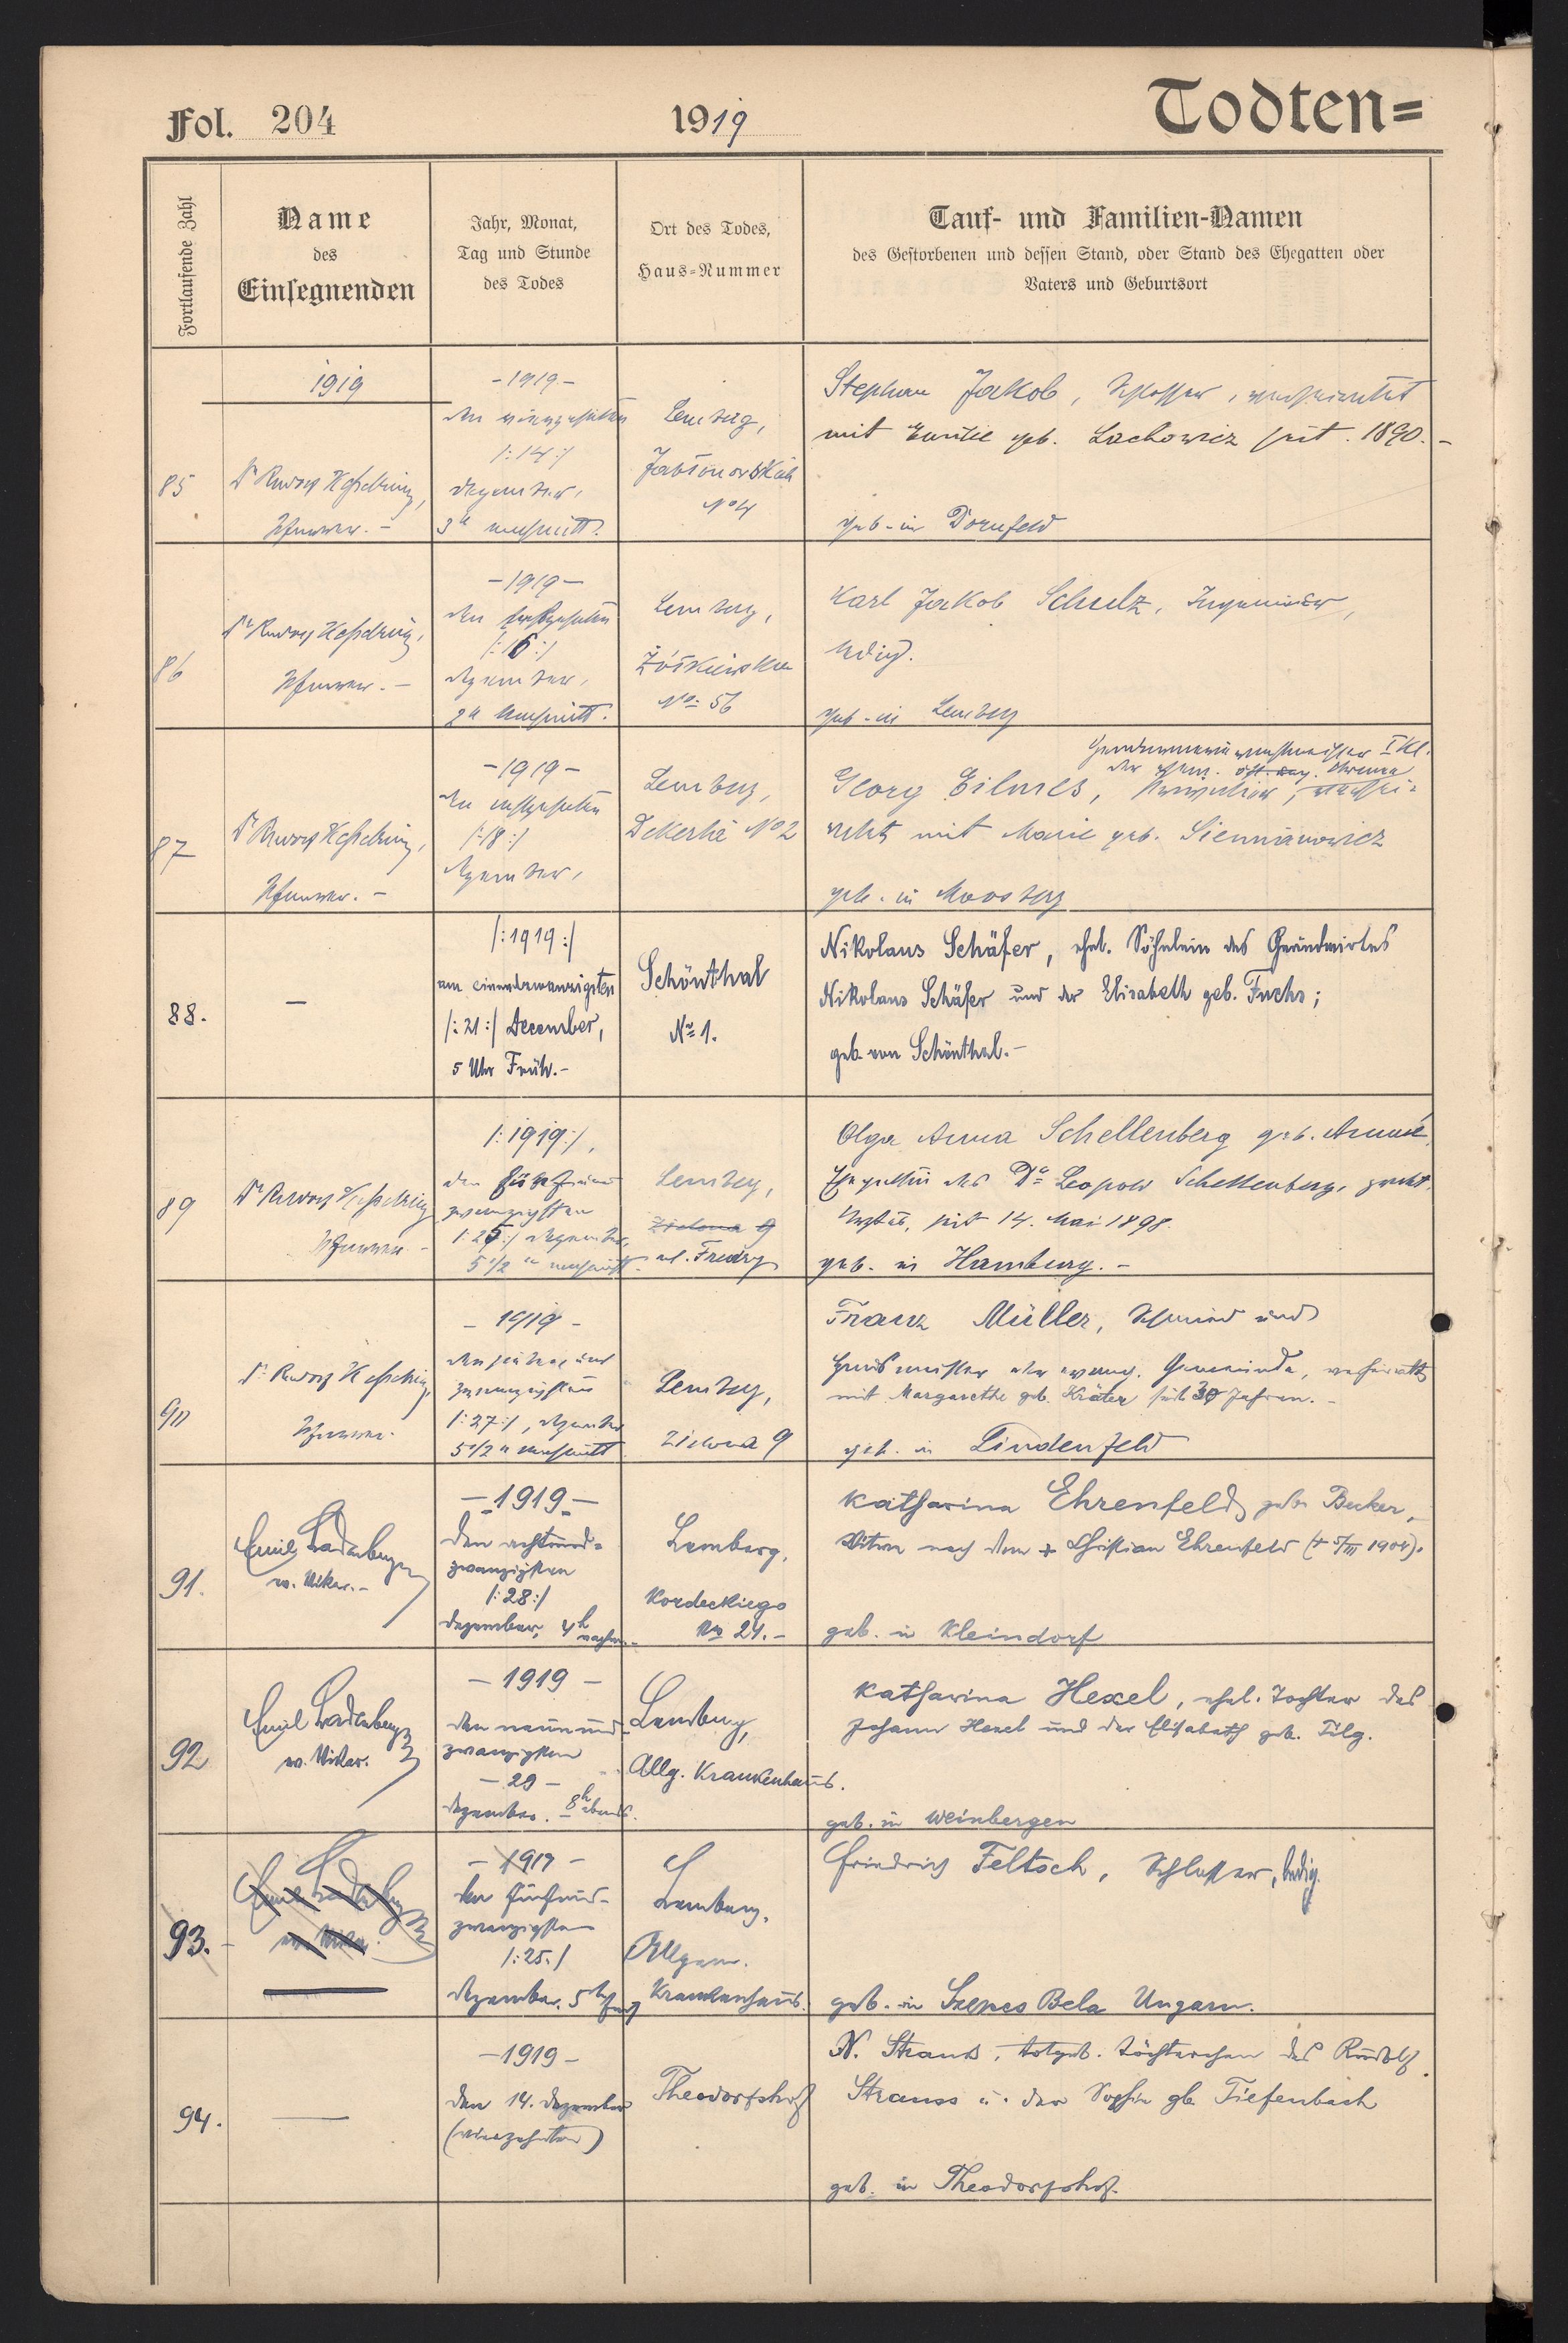 Fol. 204
1919
Todten=
Fortlaufende Zahl
Name
des
Einsegnenden
Jahr, Monat,
Tag und Stunde
des Todes
Ort des Todes,
Haus-Nummer
Tauf- und Familien-Namen
des Gestorbenen und dessen Stand, oder Stand des Ehegatten oder
Vaters und Geburtsort
1919
85
Dr Rudolf Kesselring,
Pfarrer.-
-1919-
den vierzehnten
/:14:/
Dezember,
3h nachmitt.
Lemberg,
No 4
Stephan Jakob, Schlosser, verheiratet
mit Emilie geb. Lachowicz seit 1890.-
geb. in Dornfeld
86
Dr Rudolf Kesselring,
Pfarrer.-
-1919-
den sechzehnten
/:16:/
Dezember,
2h Nachmitt.
Lemberg,
Żółkiewska
No 56
Karl Jakob Schulz, Ingenieur,
ledig.
geb. in Lemberg
87
Dr Rudolf Kesselring,
Pfarrer.-
-1919-
den achtzehnten
/:18:/
Dezember,
Lemberg,
Dekerta No 2
Gendarmeriewachtmeister I Kl.
der ehem. öst. ung. Armee
Georg Eilmes, verhei-
ratet mit Marie geb. Siemianowicz
geb. in Moosberg
88.
-
/:1919:/
am einundzwanzigsten
/:21:/ December,
5 Uhr Früh.-
Schönthal
No 1.
Nikolaus Schäfer, ehel. Söhnlein des Grundwirtes
Nikolaus Schäfer und der Elisabeth geb. Fuchs;
geb. von Schönthal.-
89
Dr Rudolf Kesselring
Pfarrer-
/:1919:/,
den fünfund
zwanzigsten
/:25:/ Dezember,
5 1/2 h nachmitt.
Lemberg,
Zielona 9
ul. Fredry
Olga Anna Schellenberg geb.
Ehegattin des Dr Leopold Schellenberg, prakt.
Arztes, seit 14. Mai 1898.
geb. in Hamburg.-
90
Dr Rudolf Kesselring,
Pfarrer.
-1919-
den siebenund
zwanzigsten
/:27:/, Dezember
5 1/2 h nachmitt
Lemberg,
Zielona 9
Franz Müller, Schmied und
Hausmeister der evang. Gemeinde, verheiratet
mit Margarethe geb. Kräter seit 30 Jahren.-
geb. in Lindenfeld
91.
Emil Ladenberger
ev. Vikar.-
-1919-
den achtund-
zwanzigsten
/:28:/
Dezember, 4h nachm.-
Lemberg,
Kordeckiego
No 21.-
Katharina Ehrenfeld, geb. Becker,
Witwe nach dem + Christian Ehrenfeld (+ 5/III 1904).
geb. in Kleindorf
92
Emil Ladenberger
ev. Vikar.
-1919-
den neunund-
zwanzigsten
-29-
Dezember. 8h abends.
Lemberg,
Allg. Krankenhaus.
Katharina Hexel, ehel. Tochter des
Johann Hexel und der Elisabeth geb. Filg.
geb. in Weinbergen
93.-
Emil Ladenberger
ev. Vikar.
-1919-
den fünfund-
zwanzigsten
/:25:/
Dezember. 5h früh
Lemberg,
Allgem.
Krankenhaus.
Friedrich Feltsch, Schlosser, ledig.
geb. in Szepes Bela Ungarn.
94.
-
-1919-
den 14. Dezember
(vierzehnten)
Theodorshof
N. Strauss, totgeb. Töchterchen des Rudolf
Strauss u. der Sophie gb. Tiefenbach
geb. in Theodorshof.